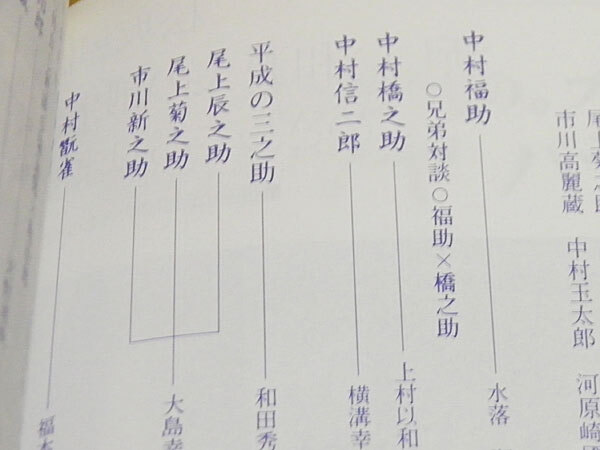 市川高麗蔵 中村玉太郎 河原崎
中村福助 水落
○兄弟対談○福助×橋之助
中村橋之助 上村以和
中村信二郎 横溝幸
平成の三之助 和田秀
尾上辰之助
尾上菊之助 大島幸
市川新之助
中村翫雀 福本